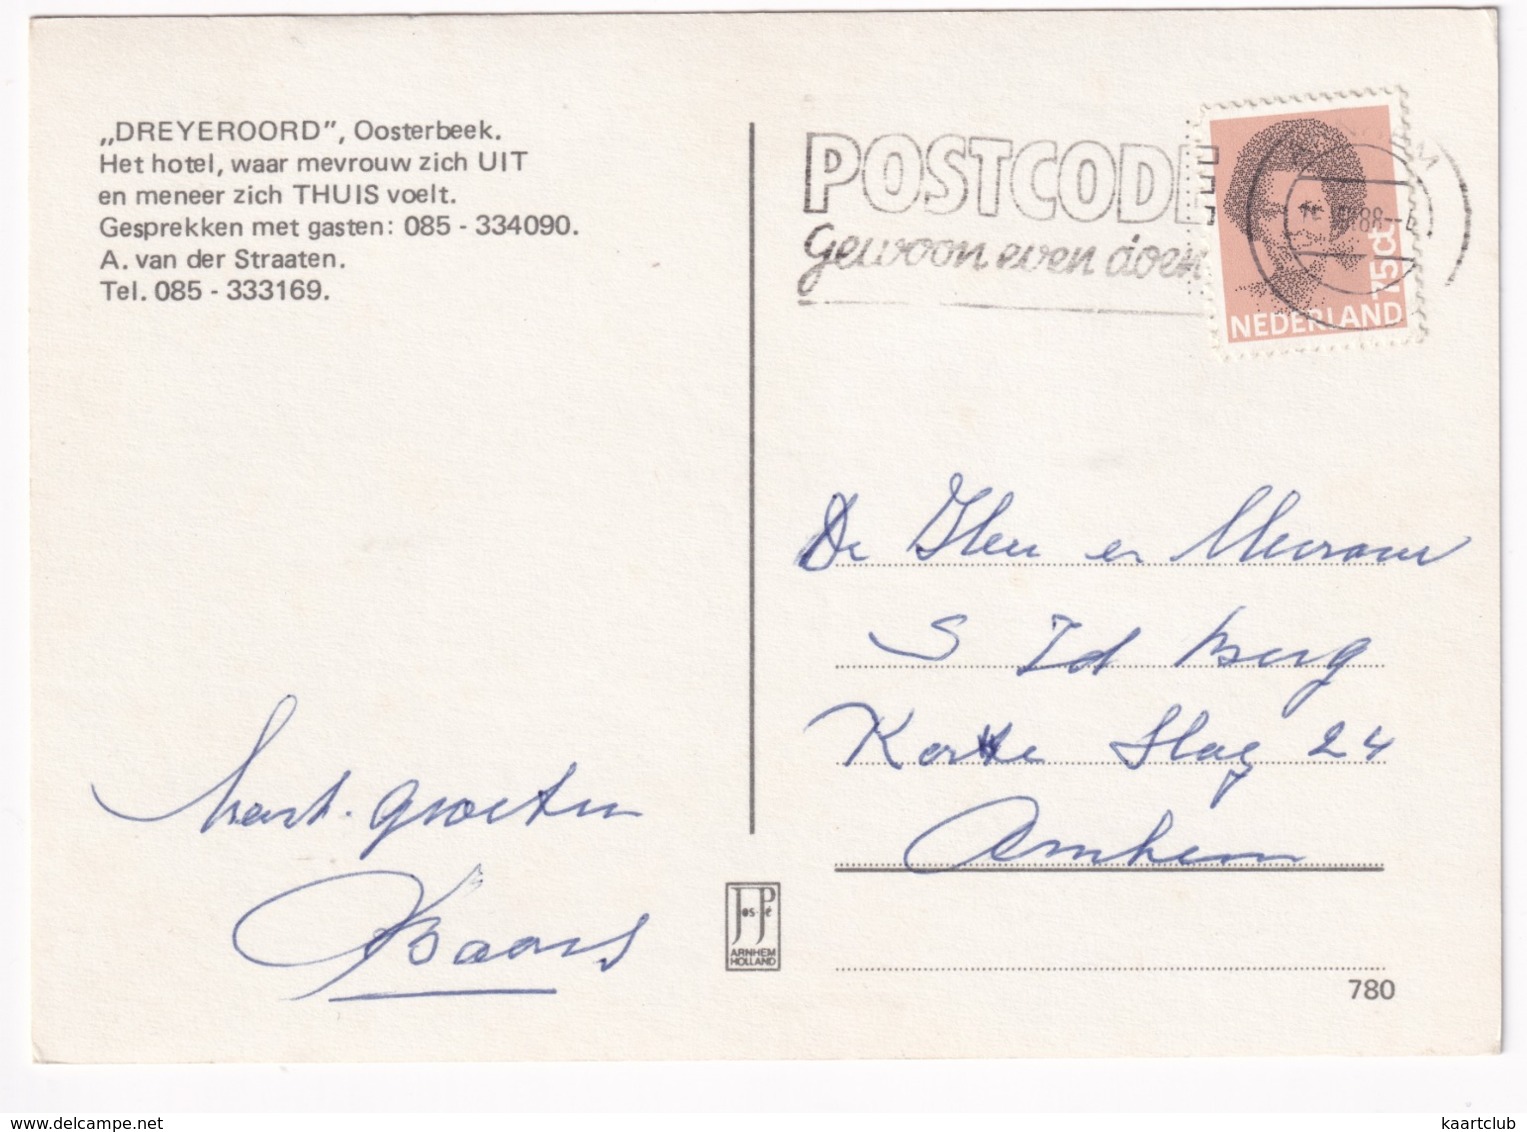 „DREYEROORD”, Oosterbeek.
Het hotel, waar mevrouw zich UIT
en meneer zich THUIS voelt.
Gesprekken met gasten: 085 - 334090.
A. van der Straaten.
Tel. 085 - 333169.
POSTCODE
gewoon even doen
75ct
NEDERLAND
De Heer en Mevrouw
S Id Berg
Korte Slag 24
Arnhem
hart. groeten
Baars
Jos-Pé
ARNHEM
HOLLAND
780
www.delcampe.net
kaartclub